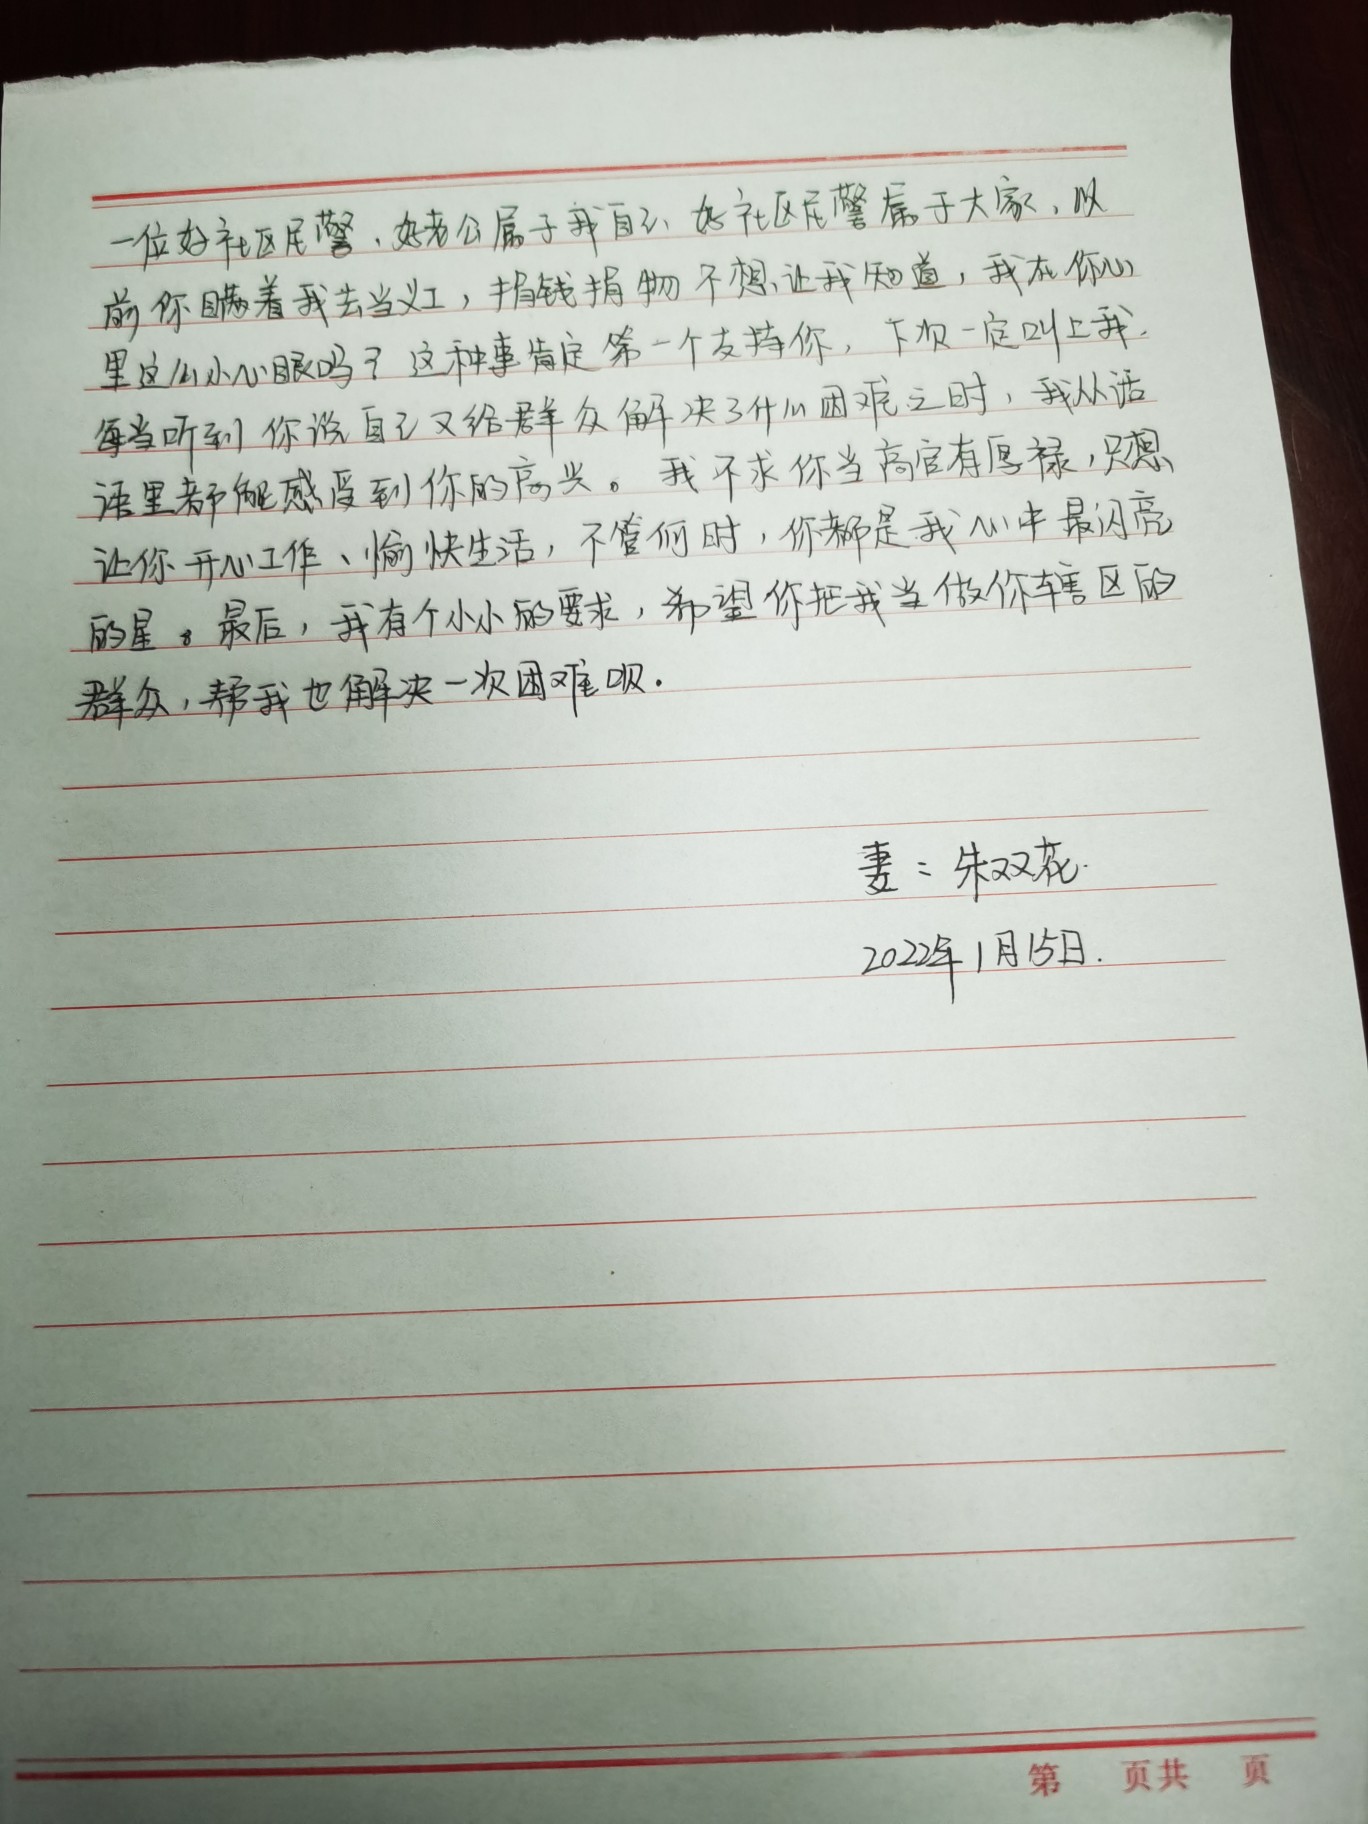 一位好社区民警、好老公属于我自己、好社区民警属于大家，以
前你瞒着我去当义工，捐钱捐物不想让我知道，我在你心
里这么小心眼吗？这种事肯定第一个支持你，下次一定叫上我.
每当听到你说自己又给群众解决了什么困难之时，我从话
语里都能感受到你的高兴。我不求你当高官有厚禄，只想
让你开心工作、愉快生活，不管何时，你都是我心中最闪亮
的星。最后，我有个小小的要求，希望你把我当做你辖区的
群众，帮我也解决一次困难呗.
妻：朱双花.
2022年1月15日.
第 页共 页